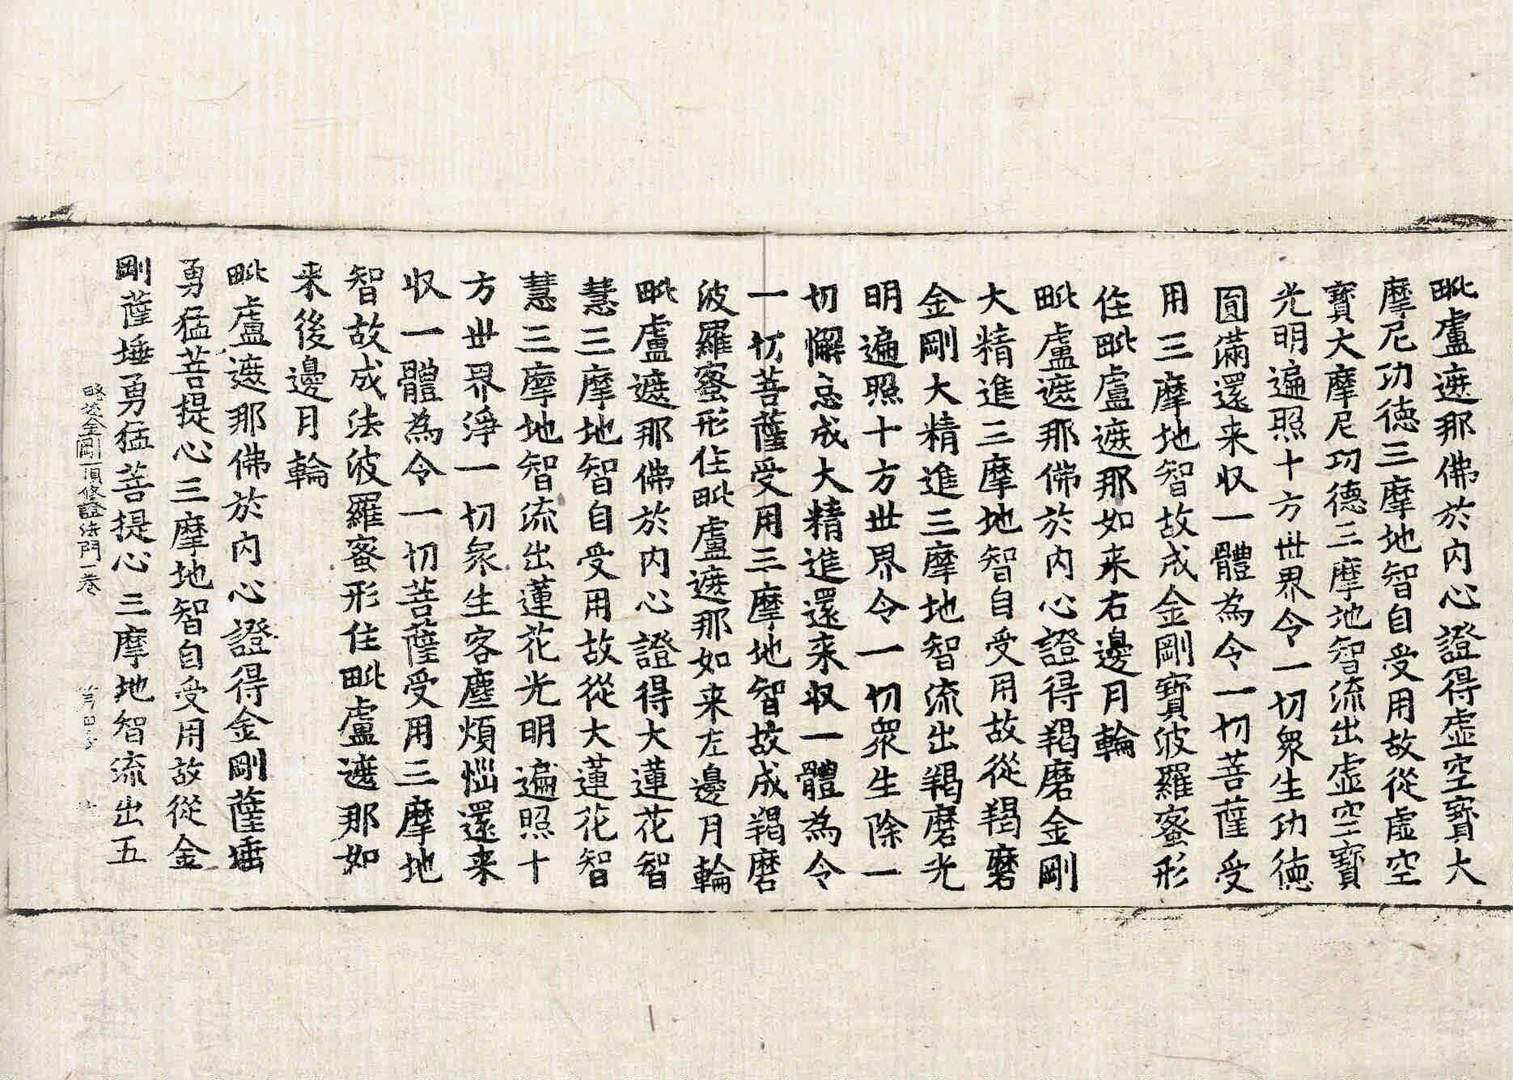 毗盧遮那佛於内心證得虛空寶大
摩尼功德三摩地智自受用故從虛空
寶大摩尼功德三摩地智流出虛空寶
光明遍照十方世界令一切衆生功德
圓滿還来収一體為令一切菩薩受
用三摩地智故成金剛寶波羅蜜形
住毗盧遮那如来右邊月輪
毗盧遮那佛於内心證得羯磨金剛
大精進三摩地智自受用故從羯磨
金剛大精進三摩地智流出羯磨光
明遍照十方世界令一切衆生除一
切懈怠成大精進還来収一體為令
一切菩薩受用三摩地智故成羯磨
波羅蜜形住毗盧遮那如来左邊月輪
毗盧遮那佛於内心證得大蓮花智
慧三摩地智自受用故從大蓮花智
慧三摩地智流出蓮花光明遍照十
方世界淨一切衆生客塵煩惱還来
収一體為令一切菩薩受用三摩地
智故成法波羅蜜形住毗盧遮那如
来後邊月輪
毗盧遮那佛於内心證得金剛薩埵
勇猛菩提心三摩地智自受用故從金
剛薩埵勇猛菩提心三摩地智流出五
略述金剛頂修證法門一卷 第四